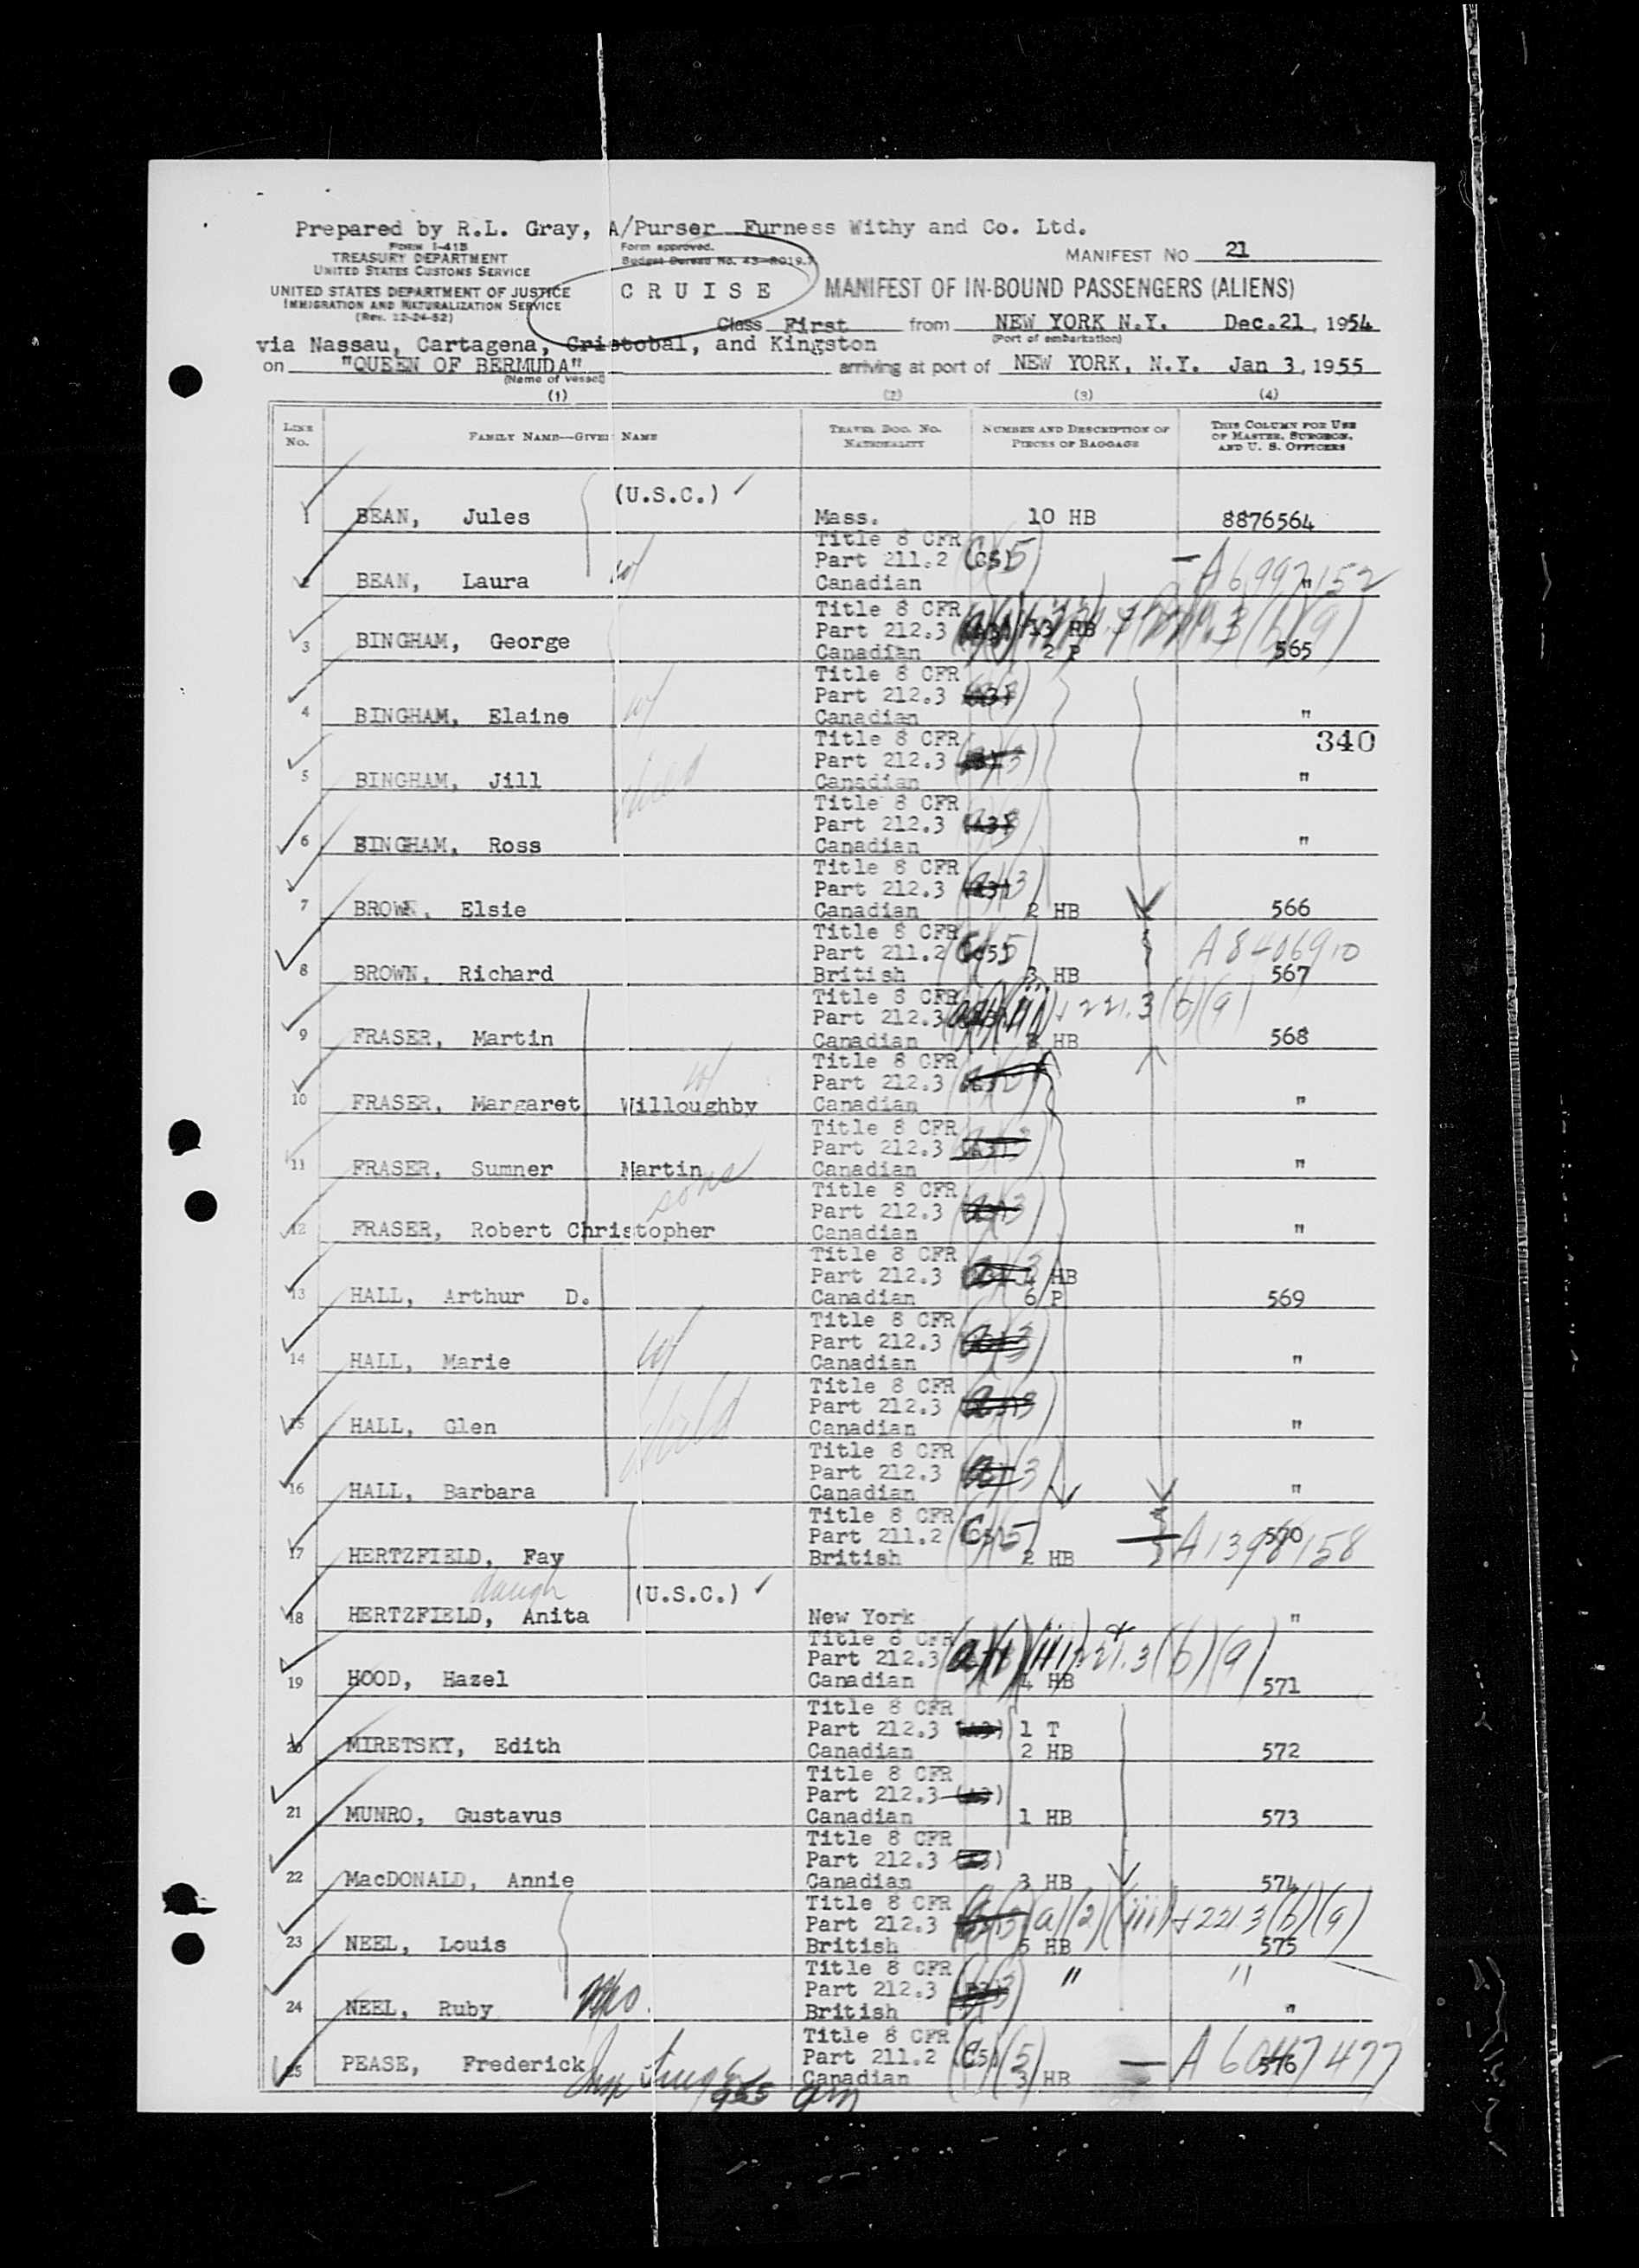 Prepared by R.L. Gray, A/Purser Furness Withy and Co. Ltd.
FORM I-415
TREASURY DEPARTMENT
UNITED STATES CUSTOMS SERVICE
UNITED STATES DEPARTMENT OF JUSTICE
IMMIGRATION AND NATURALIZATION SERVICE
(Rev. 12-24-52)
Form approved.
Budget Bureau No. 43-R019.
MANIFEST NO 21
CRUISE
MANIFEST OF IN-BOUND PASSENGERS (ALIENS)
Class First from NEW YORK N.Y. Dec.21, 1954
(Port of embarkation)
via Nassau, Cartagena, Cristobal, and Kingston
on "QUEEN OF BERMUDA" arriving at port of NEW YORK, N.Y. Jan 3, 1955
(Name of vessel)
(1) (2) (3) (4)
LINE No.
FAMILY NAME—GIVEN NAME
TRAVEL DOC. NO. NATIONALITY
NUMBER AND DESCRIPTION OF PIECES OF BAGGAGE
THIS COLUMN FOR USE OF MASTER, SURGEON, AND U. S. OFFICERS
(U.S.C.) ✓
1 BEAN, Jules Mass. 10 HB 8876564
Title 8 CFR
Part 211.2 (c5) A6997152
2 BEAN, Laura w/ Canadian "
Title 8 CFR
Part 212.3 13 HB
3 BINGHAM, George Canadian 2 P 565
Title 8 CFR
Part 212.3
4 BINGHAM, Elaine w/ Canadian "
340
Title 8 CFR
Part 212.3
5 BINGHAM, Jill Canadian "
Title 8 CFR
Part 212.3
6 BINGHAM, Ross Canadian "
Title 8 CFR
Part 212.3
7 BROWN, Elsie Canadian 2 HB 566
Title 8 CFR
Part 211.2 A8406910
8 BROWN, Richard British 3 HB 567
Title 8 CFR
Part 212.3 + 221.3 (b)(9)
9 FRASER, Martin Canadian 8 HB 568
Title 8 CFR
Part 212.3
10 FRASER, Margaret Willoughby w/ Canadian "
Title 8 CFR
Part 212.3
11 FRASER, Sumner Martin Canadian "
sons
Title 8 CFR
Part 212.3
12 FRASER, Robert Christopher Canadian "
Title 8 CFR
Part 212.3 4 HB
13 HALL, Arthur D. Canadian 6 P 569
Title 8 CFR
Part 212.3
14 HALL, Marie w/ Canadian "
Title 8 CFR
Part 212.3
15 HALL, Glen Canadian "
Title 8 CFR
Part 212.3
16 HALL, Barbara Canadian "
Title 8 CFR
Part 211.2 570
17 HERTZFIELD, Fay British 2 HB A1398158
daugh (U.S.C.) ✓
18 HERTZFIELD, Anita New York "
Title 8 CFR
Part 212.3 (a)(1)(iii) + 221.3 (b)(9)
19 HOOD, Hazel Canadian 4 HB 571
Title 8 CFR
Part 212.3 1 T
20 MIRETSKY, Edith Canadian 2 HB 572
Title 8 CFR
Part 212.3
21 MUNRO, Gustavus Canadian 1 HB 573
Title 8 CFR
Part 212.3
22 MacDONALD, Annie Canadian 3 HB 574
Title 8 CFR
Part 212.3 (a)(2)(iii) + 221 3 (b)(9)
23 NEEL, Louis British 5 HB 575
Title 8 CFR " "
Part 212.3
24 NEEL, Ruby British "
Title 8 CFR
25 PEASE, Frederick Part 211.2 (5) A6047477 576
Canadian 3 HB